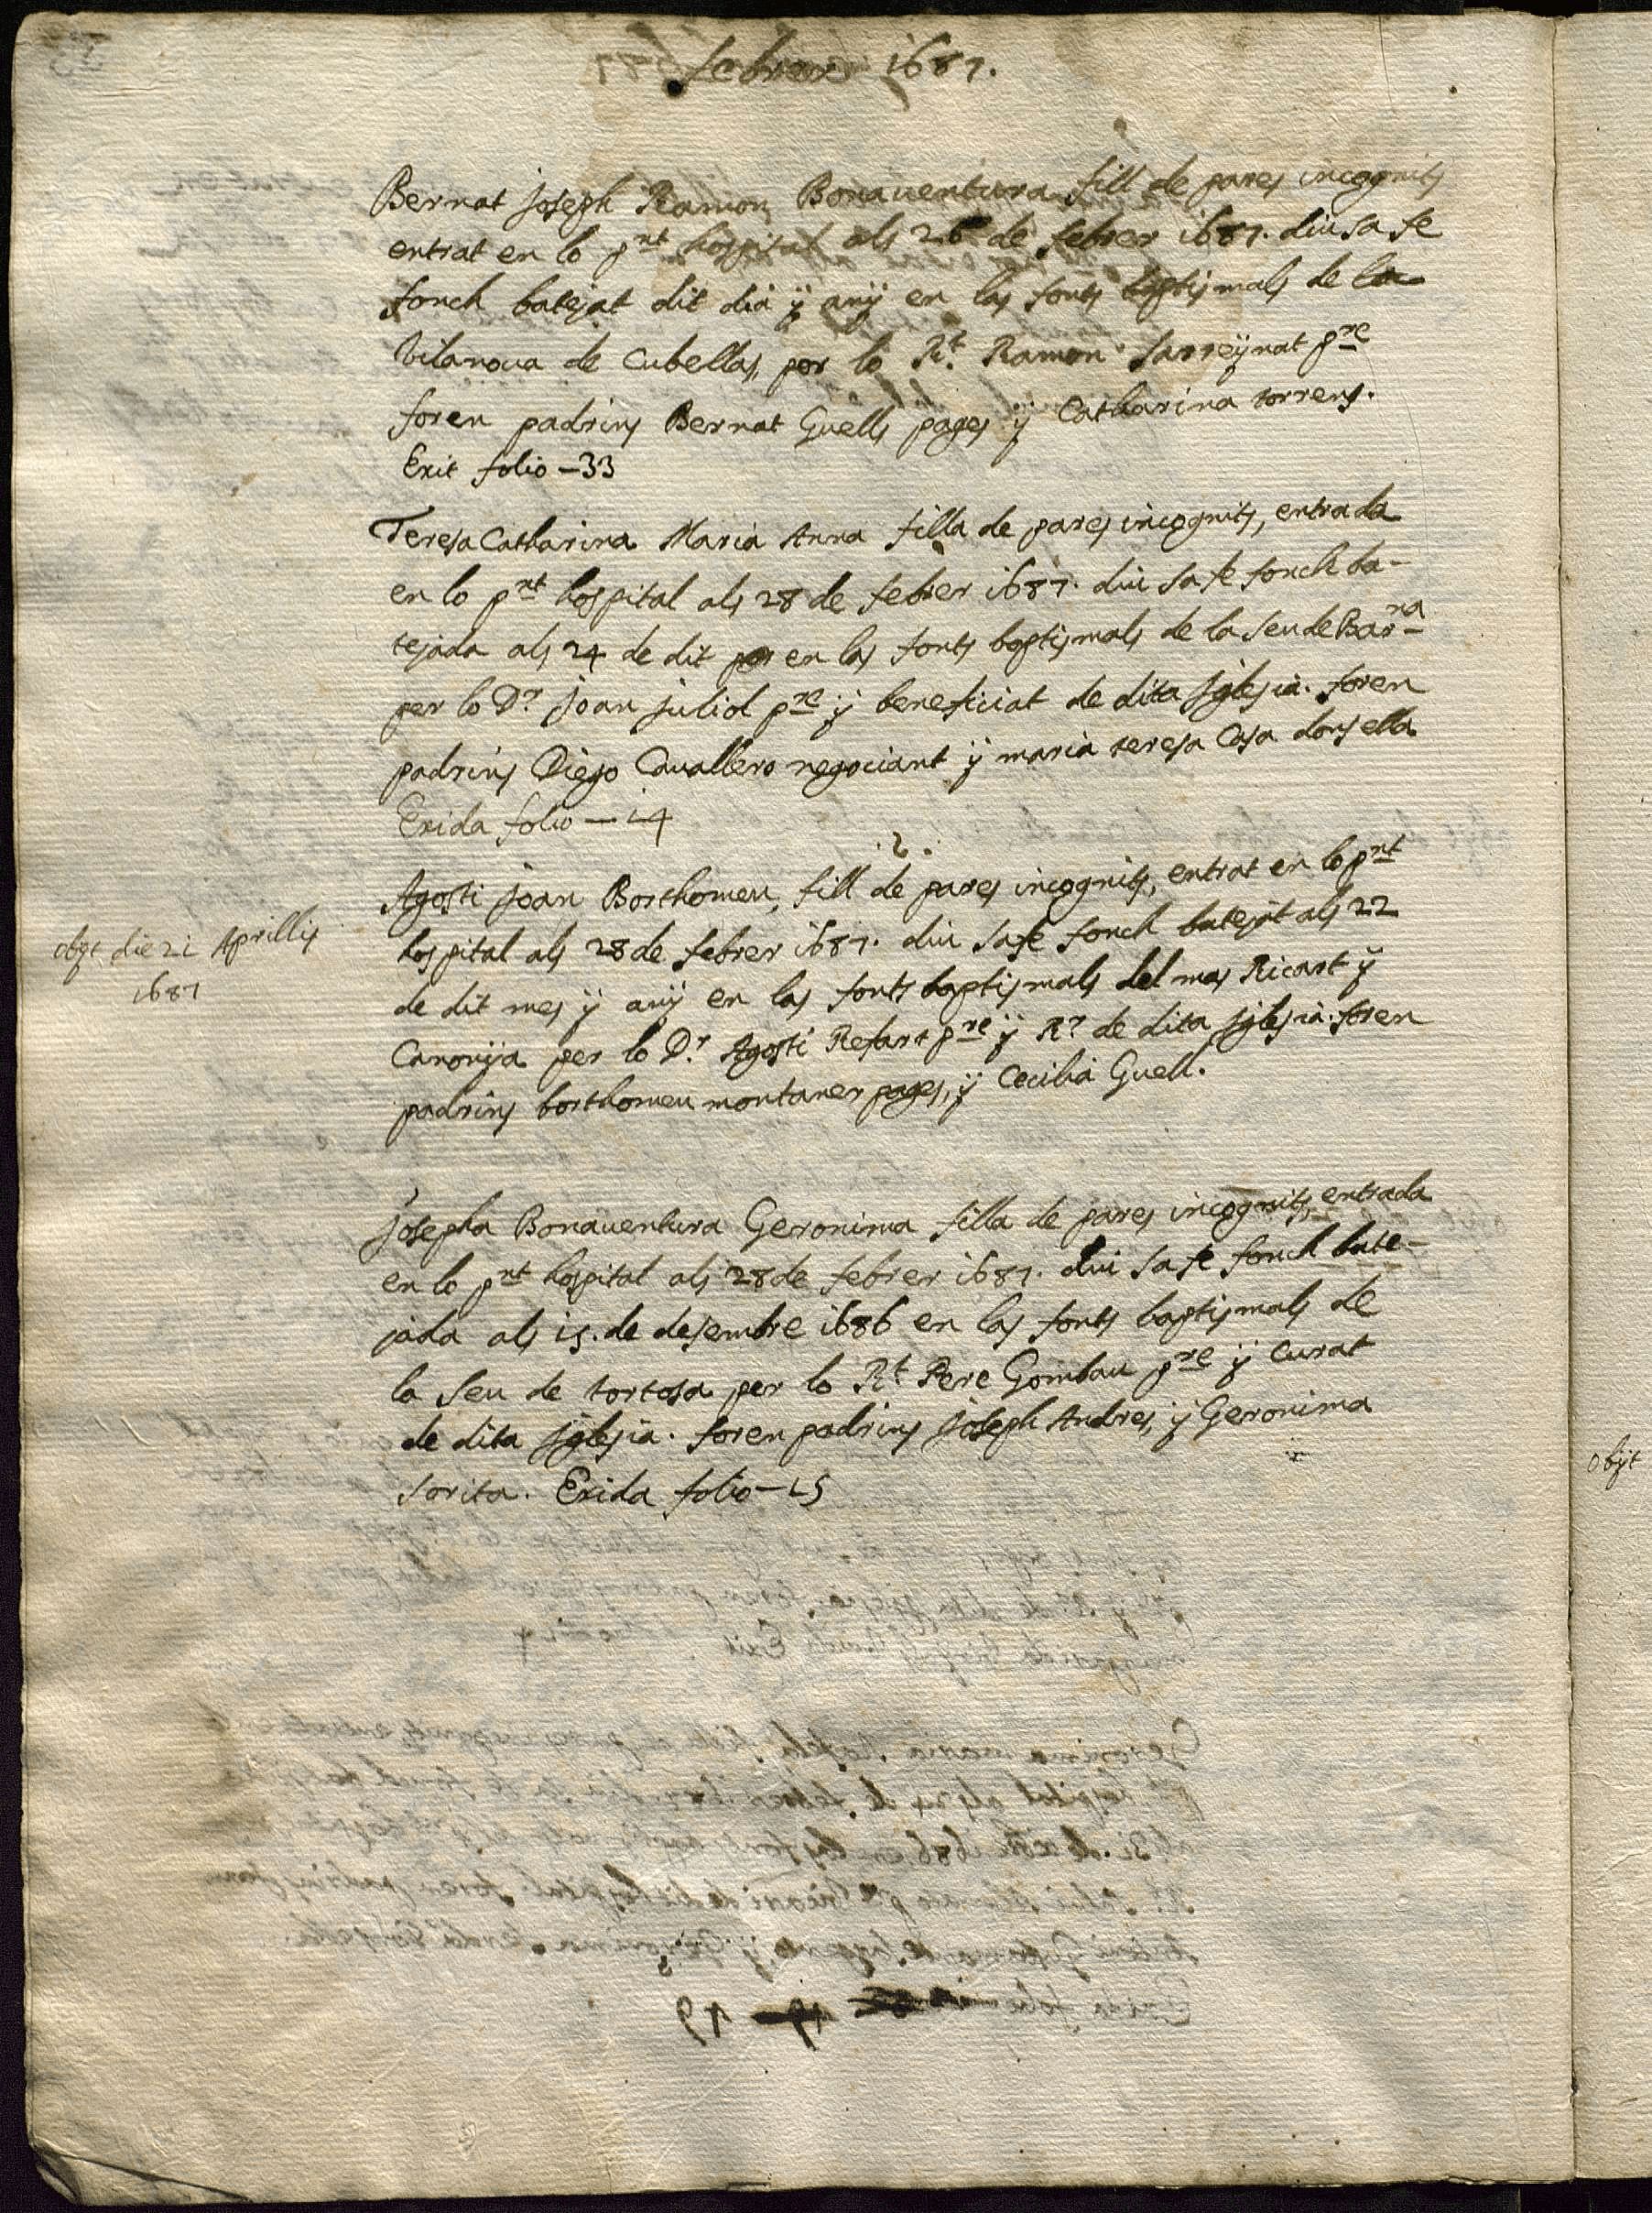 febrer 1687.
Bernat Joseph Ramon Bonaventura fill de pares incognits
entrat en lo pnt hospital als 26 de febrer 1687. diu sa fe
fonch batejat dit dia ÿ anÿ en las fonts baptismals de la
Vilanova de Cubellas, per lo Rt. Ramon Sarreÿnat pre
foren padrins Bernat Guells pages ÿ Catharina torrens.
Exit folio - 33
Teresa Catharina Maria Anna filla de pares incognits, entrada
en lo pnt hospital als 28 de febrer 1687. diu sa fe fonch ba-
tejada als 24 de dit en las fonts baptismals de la Seu de Barna
per lo Dr Joan Juliol pre ÿ beneficiat de dita Iglesia. foren
padrins Diego Cavallero negociant ÿ maria teresa Casa donsella
Exida folio - 14
Agosti Joan Borthomeu, fill de pares incognits, entrat en lo pnt
hospital als 28 de febrer 1687. diu sa fe fonch batejat als 22
de dit mes ÿ anÿ en las fonts baptismals del mas Ricart ÿ
Canonja per lo Dr. Agosti Refart pre ÿ Rr de dita Iglesia. foren
padrins borthomeu montaner pages, ÿ Cecilia Guell.
obÿt die 21 Aprillis
1687
Josepha Bonaventura Geronima filla de pares incognits, entrada
en lo pnt hospital als 28 de febrer 1687. diu sa fe fonch bate-
jada als 15. de desembre 1686 en las fonts baptismals de
la Seu de tortosa per lo Rt Pere Gombau pre ÿ curat
de dita Iglesia. foren padrins Joseph Andres, ÿ Geronima
Sorita. Exida folio - 15
obÿt